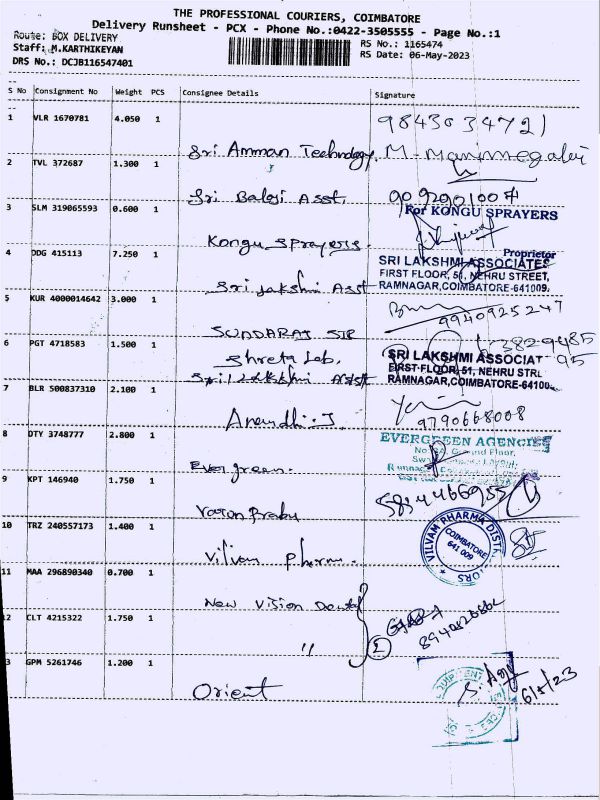 THE PROFESSIONAL COURIERS, COIMBATORE
Delivery Runsheet - PCX - Phone No.:0422-3505555 - Page No.:1
Route: BOX DELIVERY
Staff: M.KARTHIKEYAN
DRS No.: DCJB116547401
RS No.: 1165474
RS Date: 06-May-2023
S No Consignment No Weight PCS Consignee Details Signature
1 VLR 1670781 4.050 1
9843034721
Sri Amman Technology
2 TVL 372687 1.300 1
Sri Balaji Asst.
3 SLM 319065593 0.600 1
For KONGU SPRAYERS
Proprietor
Kongu Sprayers.
4 DDG 415113 7.250 1
SRI LAKSHMI ASSOCIATES
FIRST FLOOR, 51, NEHRU STREET,
RAMNAGAR,COIMBATORE-641009.
Sri Lakshmi Asst
5 KUR 4000014642 3.000 1
9940925247
SUNDARAJ
6 PGT 4718583 1.500 1
Shreta Lab,
Sri Lakshmi Asst
SRI LAKSHMI ASSOCIAT
FIRST FLOOR, 51, NEHRU STRE
RAMNAGAR,COIMBATORE-64100
7 BLR 500837310 2.100 1
9790668008
Anandhi.J
8 OTY 3748777 2.800 1
EVERGREEN AGENCIES
Evergreen.
9 KPT 146940 1.750 1
Varon Prabu
10 TRZ 240557173 1.400 1
VILVAM PHARMA DISTRIBUTORS
COIMBATORE
641 009
Vilvam Pharma.
11 MAA 296890340 0.700 1
New Vision Dental
12 CLT 4215322 1.750 1
"
13 GPM 5261746 1.200 1
Orient
6/5/23